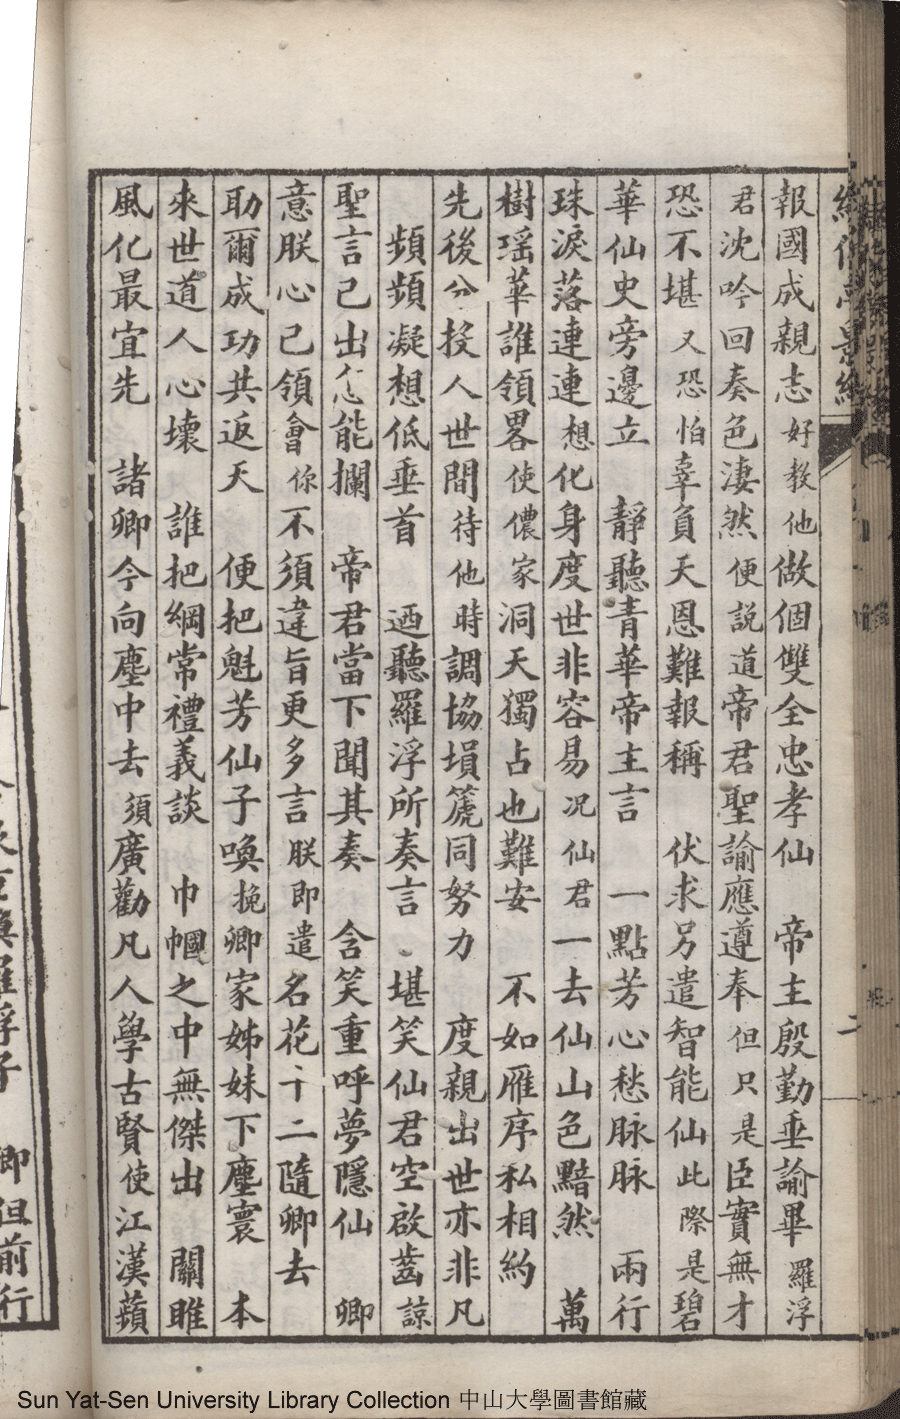 報國成親志好教他做個雙全忠孝仙　帝主殷勤垂諭畢羅浮
君沈吟回奏色淒然便説道帝君聖諭應遵奉但只是臣實無才
恐不堪又恐怕辜負天恩難報稱　伏求另遣智能仙此際是碧
華仙史旁邊立　靜聽青華帝主言　一點芳心愁脉脉　兩行
珠淚落連連想化身度世非容易况仙君一去仙山色黯然　萬
樹瑶華誰領畧使儂家洞天獨占也難安　不如雁序私相約
先後分投人世間待他時調協塤篪同努力　度親出世亦非凡
頻頻凝想低垂首　迺聽羅浮所奏言　堪笑仙君空啟齒諒
聖言已出怎能攔　帝君當下聞其奏　含笑重呼夢隱仙　卿
意朕心已領會你不須違旨更多言朕即遣名花十二隨卿去
助爾成功共返天　便把魁芳仙子喚挽卿家姊妹下塵寰　本
來世道人心壞　誰把綱常禮義談　巾幗之中無傑出　關雎
風化最宜先　諸卿今向塵中去須廣勸凡人學古賢使江漢蘋
卿但前行
Sun Yat-Sen University Library Collection 中山大學圖書館藏